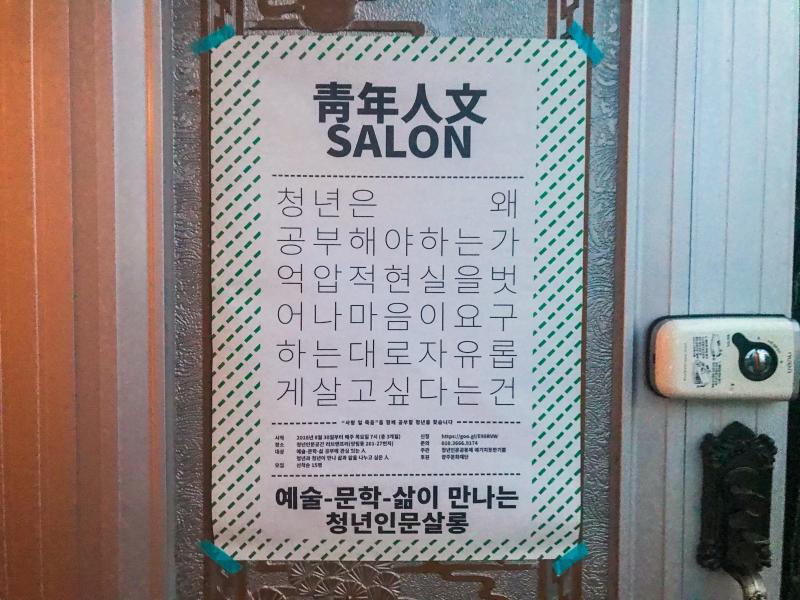 靑年人文
SALON
청년은 왜
공부해야하는가
억압적현실을벗
어나마음이요구
하는대로자유롭
게살고싶다는건
"사랑 일 죽음"을 함께 공부할 청년을 찾습니다
시작 2018년 8월 30일부터 매주 목요일 7시 (총 3개월)
장소 청년인문공간
대상 예술-문학-삶 공부에 관심 있는 人
청년과 청년이 만나 삶과 앎을 나누고 싶은 人
모집 선착순 15명
신청
문의 010.3666.9174
주관 청년인문공동체
후원 광주문화재단
예술-문학-삶이 만나는
청년인문살롱